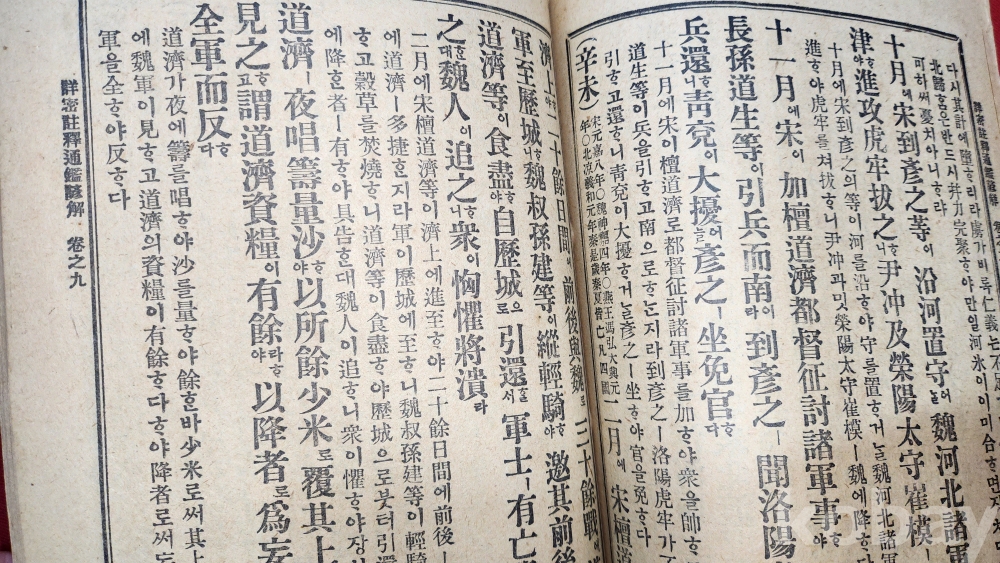 다시其計에墮ᄒᆞ리라
北歸ᄒᆞ은반드시幷力完聚ᄒᆞ야만일河氷이이미合ᄒᆞ면
可히써憂치아니ᄒᆞ랴
十月에宋到彦之等이沿河置守ᄒᆞ어늘魏河北諸軍
津ᄒᆞ야進攻虎牢拔之ᄒᆞ니尹冲及滎陽太守崔模ㅣ
十月에宋到彦之의等이河를沿ᄒᆞ야守를置ᄒᆞ거늘魏河北諸軍
進ᄒᆞ야虎牢를쳐拔ᄒᆞ니尹冲과밋滎陽太守崔模ㅣ魏에降ᄒᆞ다
十一月에宋이加檀道濟都督征討諸軍事ᄒᆞ야
長孫道生等이引兵而南이라到彦之ㅣ聞洛陽
兵還ᄒᆞ니靑兗이大擾ᄒᆞ어늘彦之ㅣ坐免官ᄒᆞ다
十一月에宋이檀道濟로都督征討諸軍事를加ᄒᆞ야衆을帥ᄒᆞ
道生等이兵을引ᄒᆞ고南으로ᄒᆞ는지라到彦之ㅣ洛陽虎牢가
引ᄒᆞ고還ᄒᆞ니靑兗이大擾ᄒᆞ거늘彦之ㅣ坐ᄒᆞ야官을免ᄒᆞ다
(辛未)宋元嘉八年○魏神䴥四年○燕王馮弘大興元年○北凉義和元年秦是歲秦夏皆亡凡四國 二月에宋檀道
濟上ᄒᆞ야二十餘日間에前後與魏로三十餘戰
軍至歷城ᄒᆞ니魏叔孫建等이縱輕騎ᄒᆞ야邀其前後
道濟等이食盡ᄒᆞ야自歷城으로引還ᄒᆞᆯᄉᆡ軍士ㅣ有亡
之ᄒᆞᆫ대魏人이追之ᄒᆞ니衆이恟懼將潰라
二月에宋檀道濟等이濟上에進至ᄒᆞ야二十餘日間에前後ㅣ
에道濟ㅣ多捷ᄒᆞᆫ지라軍이歷城에至ᄒᆞ니魏叔孫建等이輕騎
ᄒᆞ고穀草를焚燒ᄒᆞ니道濟等이食盡ᄒᆞ야歷城으로붓터引還
에降ᄒᆞᆫ者ㅣ有ᄒᆞ야具告ᄒᆞᆫ대魏人이追ᄒᆞ니衆이懼ᄒᆞ야장
道濟ㅣ夜唱籌量沙ᄒᆞ야以所餘少米로覆其上
見之ᄒᆞ고謂道濟資糧이有餘라ᄒᆞ야以降者로爲妄
全軍而反ᄒᆞ다
道濟가夜에籌를唱ᄒᆞ야沙를量ᄒᆞ야餘ᄒᆞᆫ바少米로써其上
에魏軍이見ᄒᆞ고道濟의資糧이有餘ᄒᆞ다ᄒᆞ야降者로써
軍을全ᄒᆞ야反ᄒᆞ다
詳密註釋通鑑諺解 卷之九